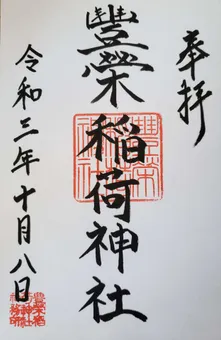 奉拝
豐榮稲荷神社
令和三年十月八日